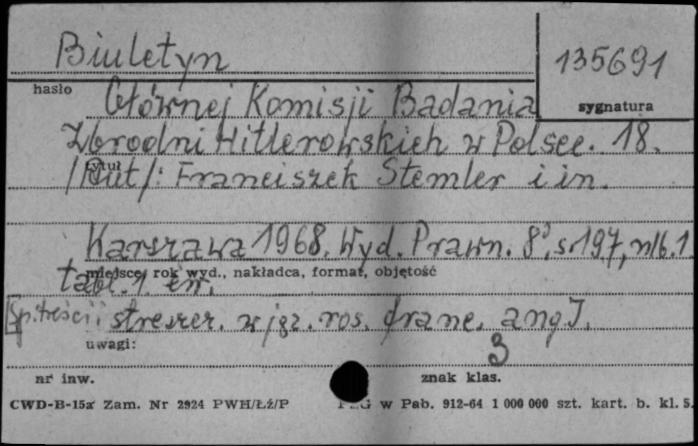 Biuletyn
135691
hasło
Głównej Komisji Badania
sygnatura
Zbrodni Hitlerowskich w Polsce. 18.
tytuł
/Aut/: Franciszek Stemler i in.
Warszawa 1968, Wyd. Prawn. 8°, s. 197, nlb. 1.
miejsce, rok wyd., nakładca, format, objętość
tabl. 1 err.
[Sp. treści i streszcz. w jęz. ros. franc. ang].
uwagi:
3
nr inw.
znak klas.
CWD-B-15a Zam. Nr 2924 PWH/Łź/P
w Pab. 912-64 1 000 000 szt. kart. b. kl. 5.